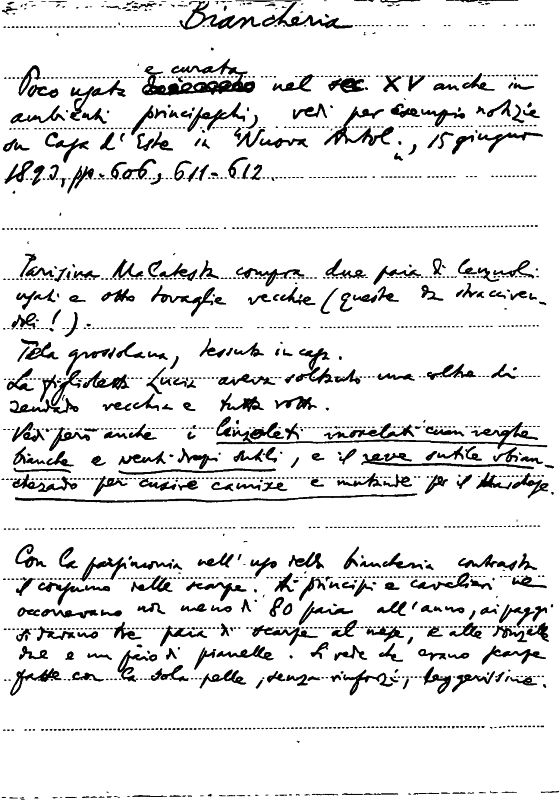 Biancheria
e curata
Poco usata nel sec. XV anche in
ambienti principeschi, vedi per esempio notizie
su Casa d'Este in "Nuova Antol.", 15 giugno
1893, pp. 606, 611-612.
Parisina Malatesta compra due paia di lenzuoli
usati e otto tovaglie vecchie (queste da stracciven-
doli!).
Tela grossolana, tessuta in casa.
La figlioletta Lucia aveva soltanto una coltre di
zendado vecchia e tutta rotta.
Vedi però anche i linzoleti morelati cum verghe
bianche e sutili, e il reve sutile sbian-
chezado per cusire camixe e mutande per il
Con la parsimonia nell'uso della biancheria contrasta
il consumo delle scarpe. Ai principi e cavalieri ne
occorrevano non meno di 80 paia all'anno, ai paggi
si davano tre paia di scarpe al mese, e alle donzelle
due e un paio di pianelle. Si vede che erano scarpe
fatte con la sola pelle, senza rinforzi, leggerissime.